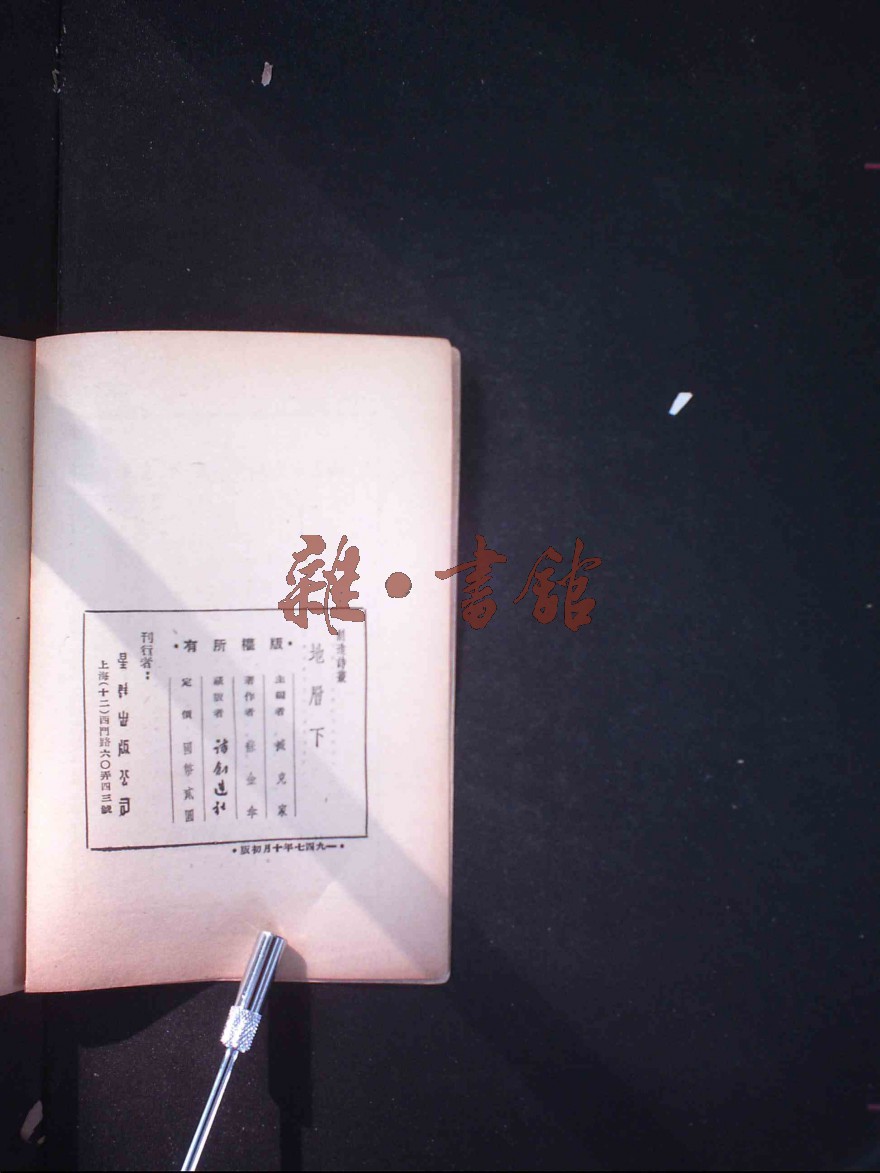 創造詩叢
地層下
•版權所有•
主編者 臧克家
著作者 蘇金傘
詩創造社
定價 國幣貳圓
刊行者：
星群出版公司
上海(十二)西門路六〇弄四三號
•一九四七年十月初版•
雜·書館